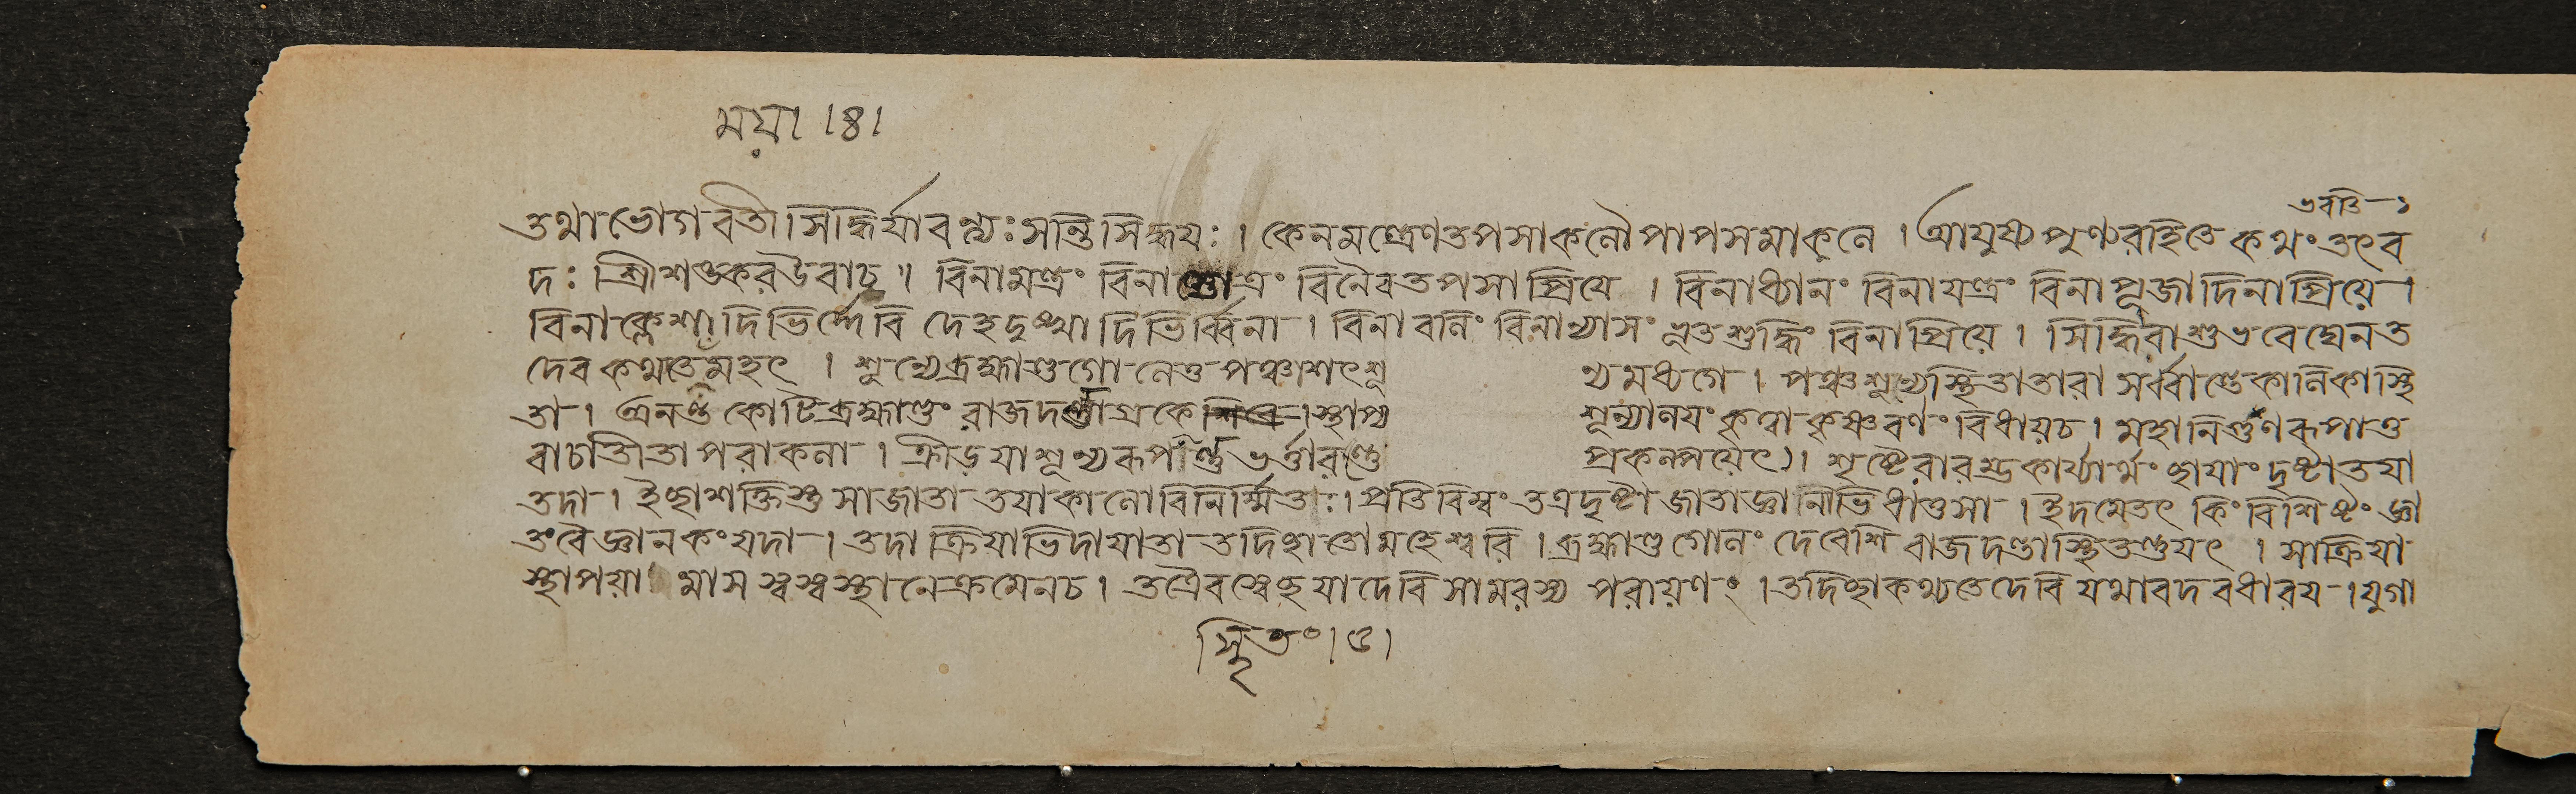 ময়া ।৪।
ভবতি-১
তথা ভোগবতী সিদ্ধির্যাবন্ত্যঃ সন্তি সিদ্ধয়ঃ । কেন মন্ত্রেণ তপসা কলৌ পাপসমাকুলে । আয়ুষ্য পুণ্য রহিতে কথং তৎ ব
দঃ শ্রীশঙ্কর উবাচ ॥ বিনা মন্ত্রং বিনা স্তোত্রং বিনৈব তপসা প্রিয়ে । বিনা ধ্যানং বিনা যন্ত্রং বিনা পূজাদিনা প্রিয়ে ।
বিনা ক্লেশাদিভির্দ্দেবি দেহদুঃখাদিভির্ব্বিনা । বিনা বলিং বিনা ন্যাসং ভূতশুদ্ধিং বিনা প্রিয়ে । সিদ্ধিরাশু ভবেদ্যেন ত
দেব কথ্যতে মহৎ । শূন্যে ব্রহ্মাণ্ডগোলেতু পঞ্চাশৎ শূ ন্য মধ্যগে । পঞ্চশূন্যে স্থিতা তারা সর্ব্বান্তে কালিকা স্থি
তা । অনন্ত কোটি ব্রহ্মাণ্ডং রাজদন্তাগ্রকে শিবে । স্থাপ্য শূন্যালয়ং কৃত্বা কৃষ্ণবর্ণং বিধায় চ । মহানির্গুণরূপা ও
বাচাতীতা পরাকলা । ক্রীড়য়া শূন্যরূপন্তু ভর্ত্তারন্তু প্রকল্পয়েৎ । সৃষ্টেরারম্ভকার্য্যার্থং ছায়াং দৃষ্টা তয়া
তদা । ইচ্ছাশক্তিস্তু সা জাতা তয়া কালো বিনির্ম্মিতঃ । প্রতিবিম্বং তত্র দৃষ্টা জাতা জ্ঞানাভিধাতুসা । ইদমেতৎ কিং বিশিষ্টং জ্ঞা
তং বৈজ্ঞানকং যদা । তদা ক্রিয়াভিদা যাতা তদিচ্ছাতো মহেশ্বরি । ব্রহ্মাণ্ডগোলং দেবেশি রাজদন্তাস্থিতন্তু যৎ । সা ক্রিয়া
স্থাপয়া মাস স্ব স্ব স্থানে ক্রমেন চ । তত্রৈব স্বেচ্ছয়া দেবি সামরস্য পরায়ণং । তদিচ্ছা কথ্যতে দেবি যথাবদবধারয় । যুগা
স্মৃতং ।৫।